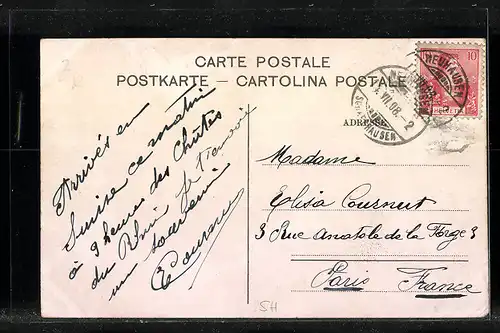 CARTE POSTALE
POSTKARTE – CARTOLINA POSTALE
ADRESSE
10
NEUHAUSEN
VII.08.-2
SCHAFFHAUSEN
Arrivés en
Suisse ce matin
à 9 heures des Chutes
du Rhin je t'envoie
un souvenir
Madame
Elisa Cournut
3 Rue Anatole de la Forge 3
Paris France
SH